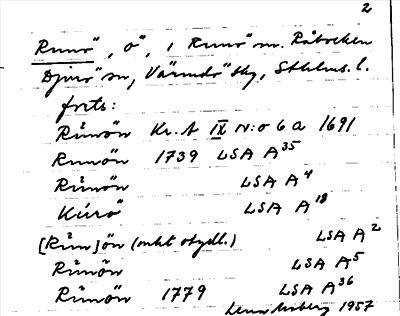 2
Runö, ö, i Runö m. Råbocken
Djurö sn, Värmdö skg, Sthlms. l.
forts:
Rŭnön Kr. A IX N:o 6 a 1691
Runön 1739 LSA A35
Rŭnön LSA A4
Kŭrö LSA A18
[Rŭn]ön (mkt otydl.) LSA A2
Rŭnön LSA A5
Rŭnön 1779 LSA A36
Lena Moberg 1957